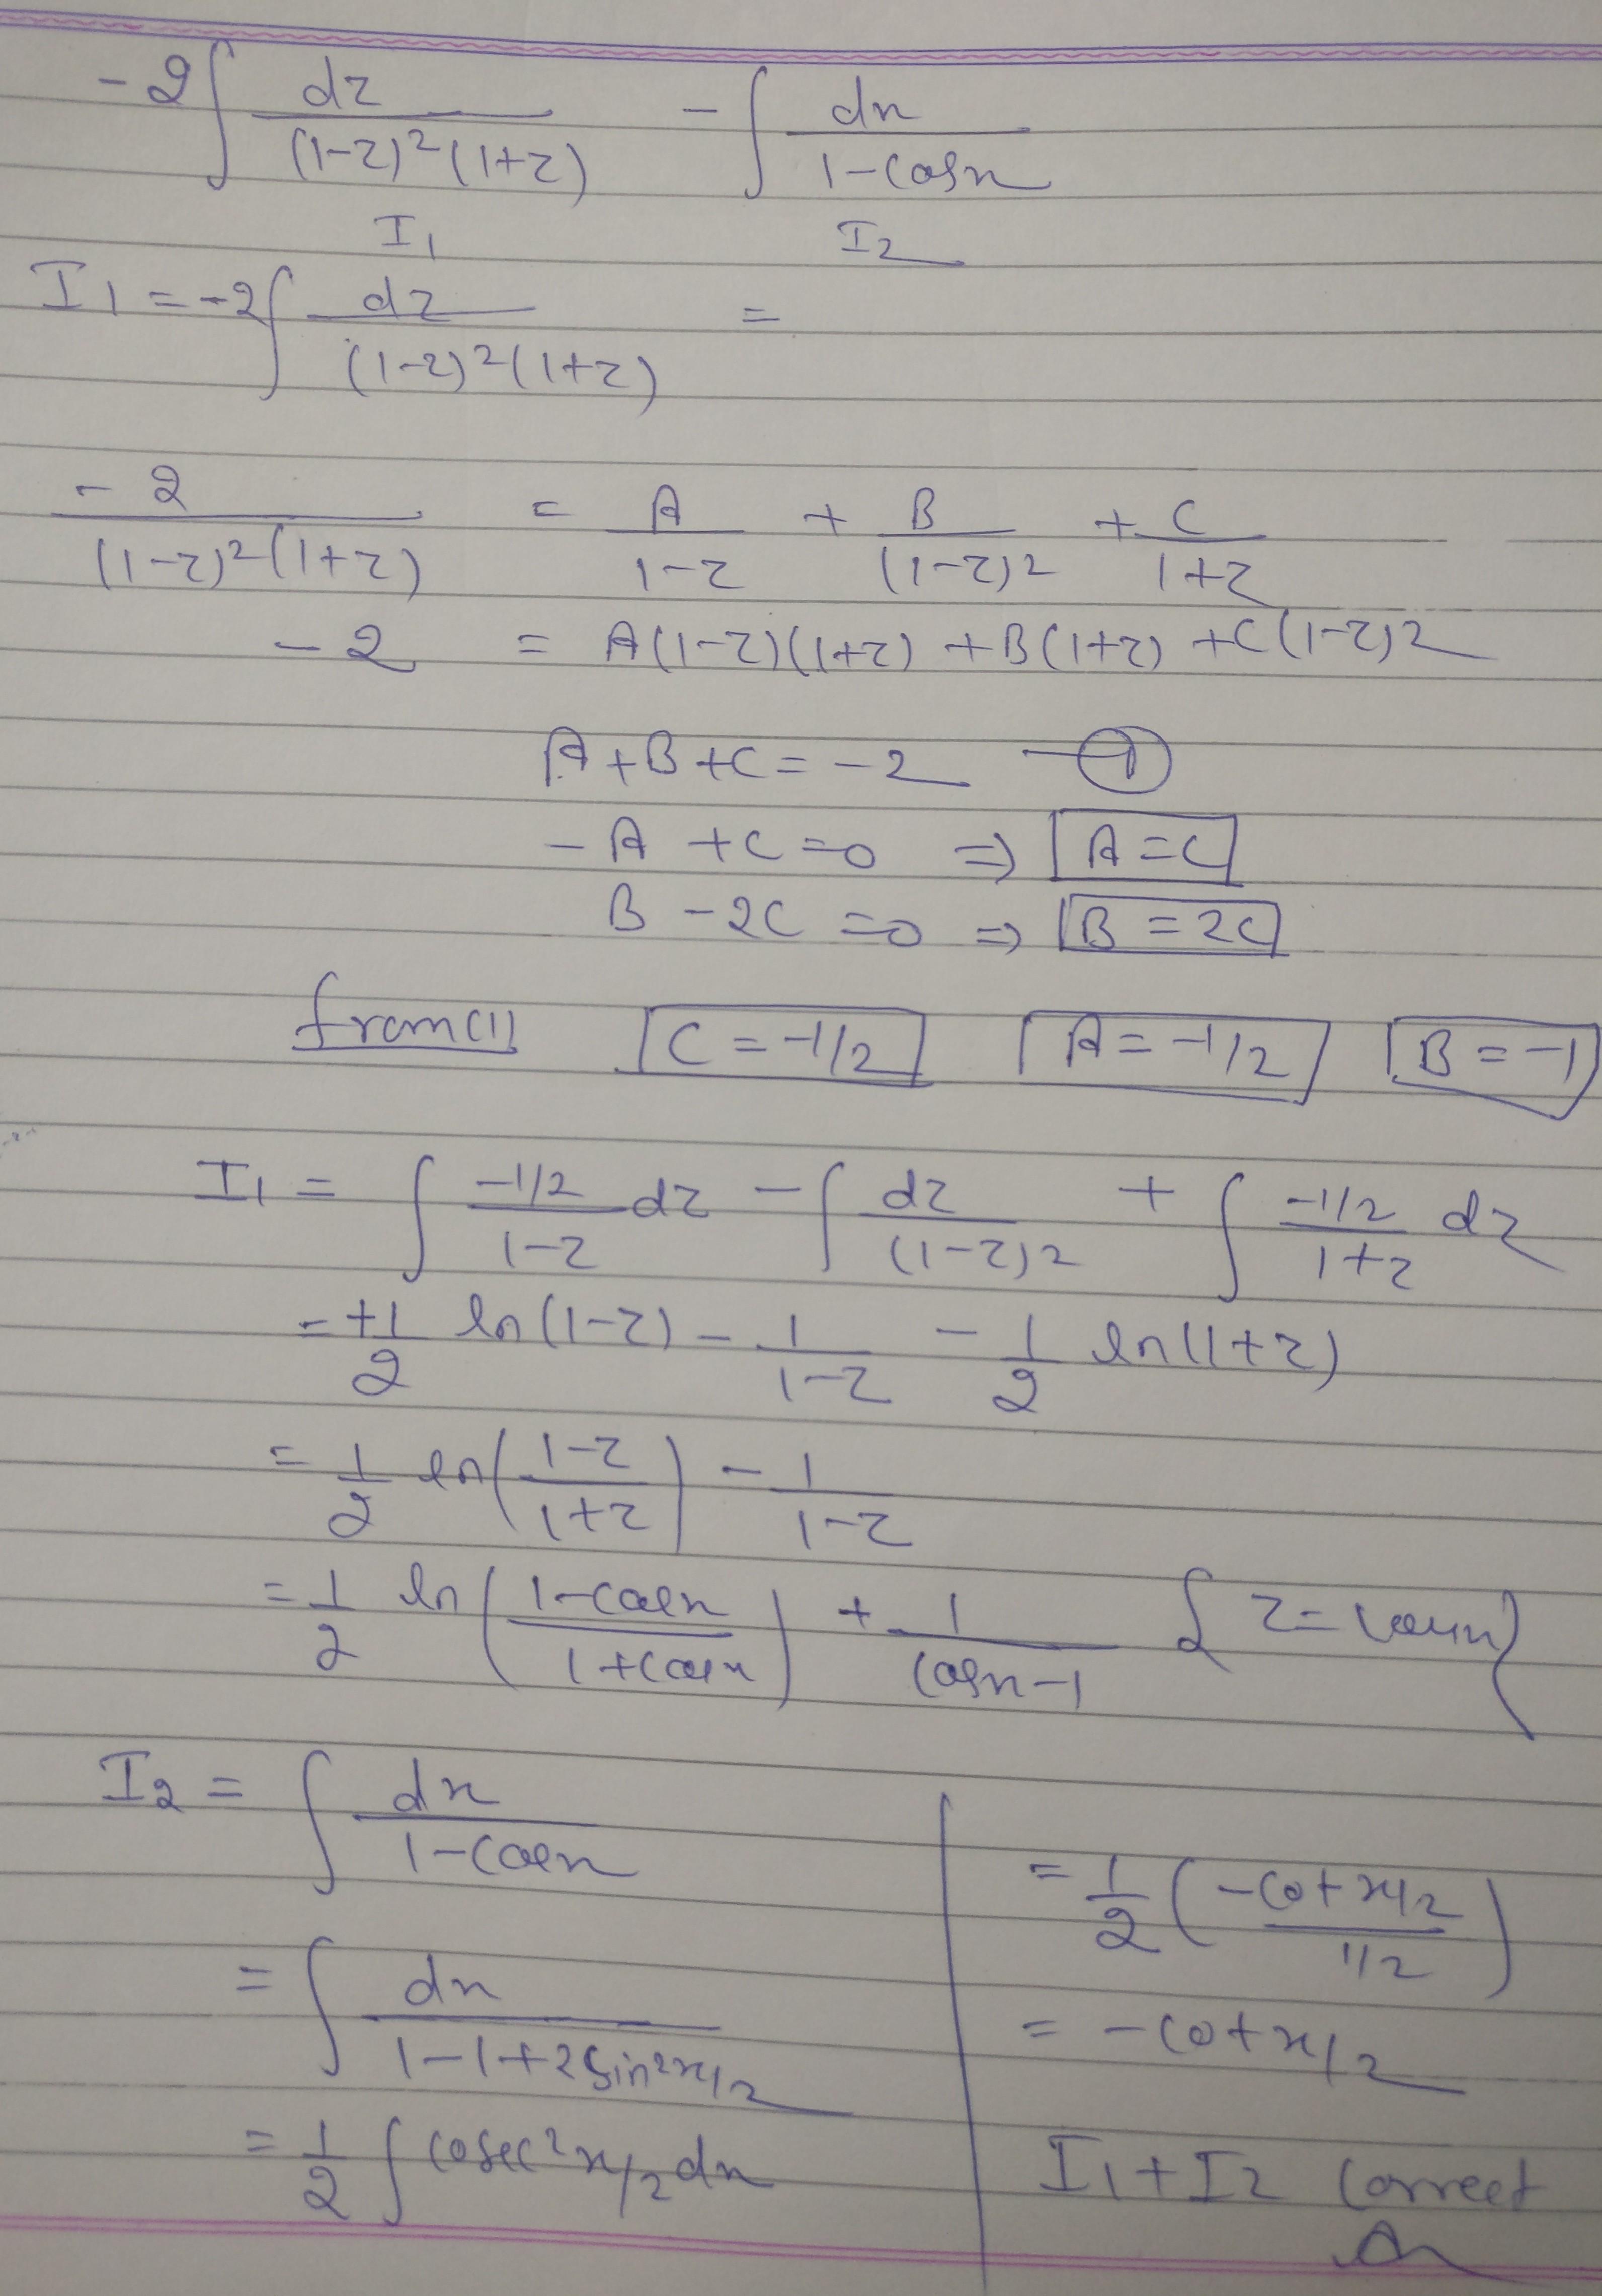 -2∫ dz/((1-z)²(1+z)) - ∫ dx/(1-cosx)
I1 I2
I1 = -2∫ dz/((1-z)²(1+z)) =
-2/((1-z)²(1+z)) = A/(1-z) + B/(1-z)² + C/(1+z)
-2 = A(1-z)(1+z) + B(1+z) + C(1-z)2
A+B+C = -2 —①
-A +C =0 ⇒ A=C
B -2C =0 ⇒ B = 2C
from (1) C = -1/2 A = -1/2 B = -1
I1 = ∫ (-1/2)/(1-z) dz - ∫ dz/(1-z)2 + ∫ (-1/2)/(1+z) dz
= +1/2 ln(1-z) - 1/(1-z) - 1/2 ln(1+z)
= 1/2 ln((1-z)/(1+z)) - 1/(1-z)
= 1/2 ln((1-cosx)/(1+cosx)) + 1/(cosx-1) { z = cosx }
I2 = ∫ dx/(1-cosx)
= ∫ dx/(1-1+2sin²x/2)
= 1/2 ∫ cosec²x/2 dx
= 1/2 (-cot x/2 / 1/2)
= -cot x/2
I1+I2 Correct